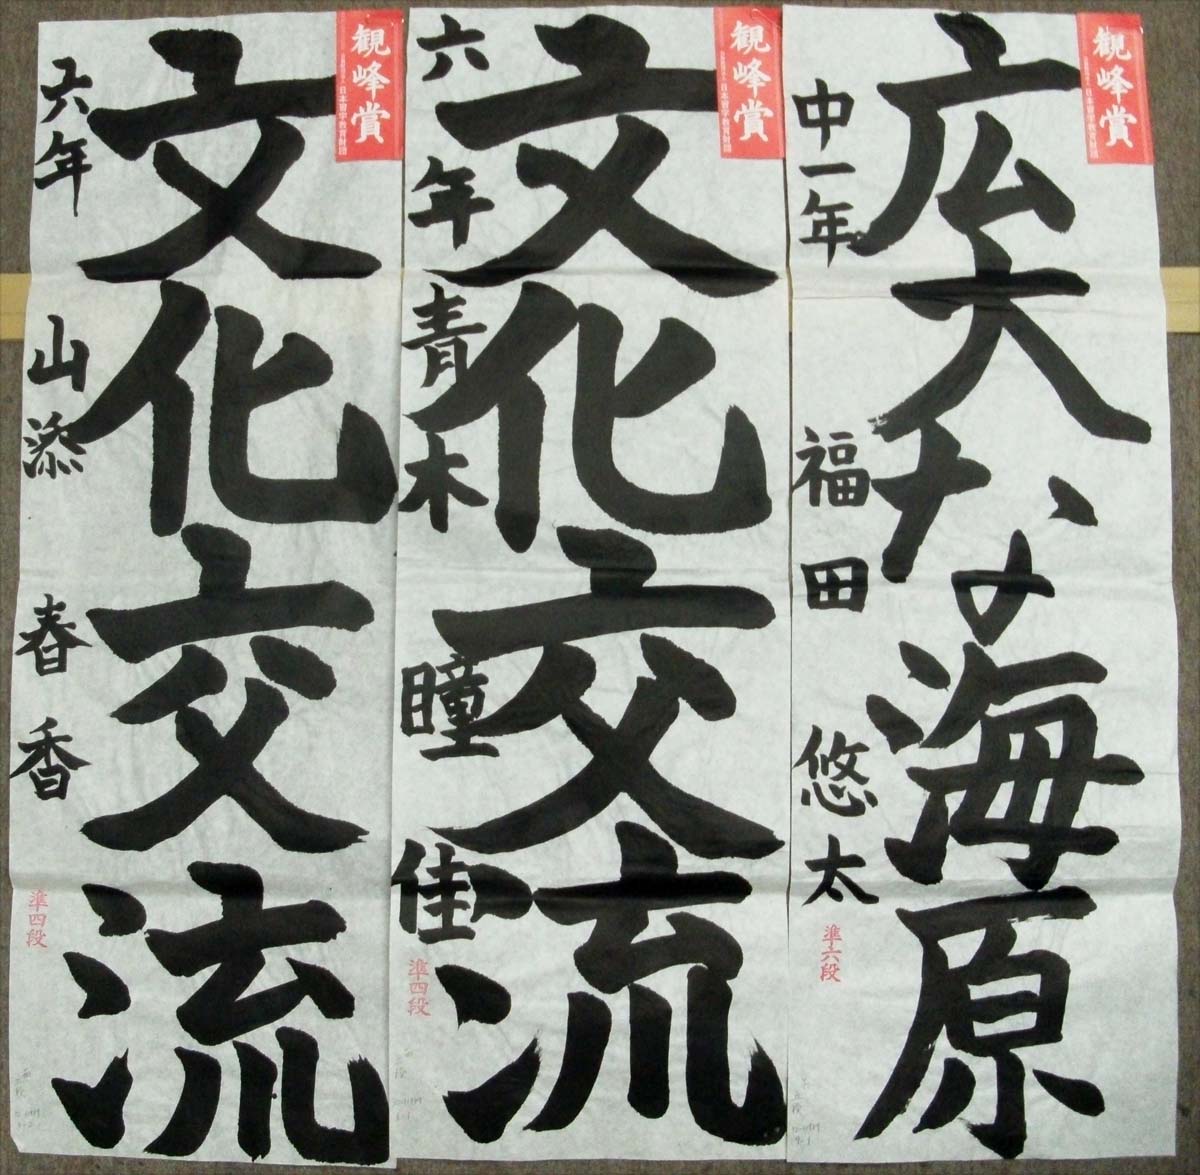 観峰賞
公益財団法人日本習字教育財団
広大な海原
中一年 福田悠太
準六段
観峰賞
公益財団法人日本習字教育財団
文化交流
六年 青木瞳佳
準四段
観峰賞
公益財団法人日本習字教育財団
文化交流
六年 山添春香
準四段